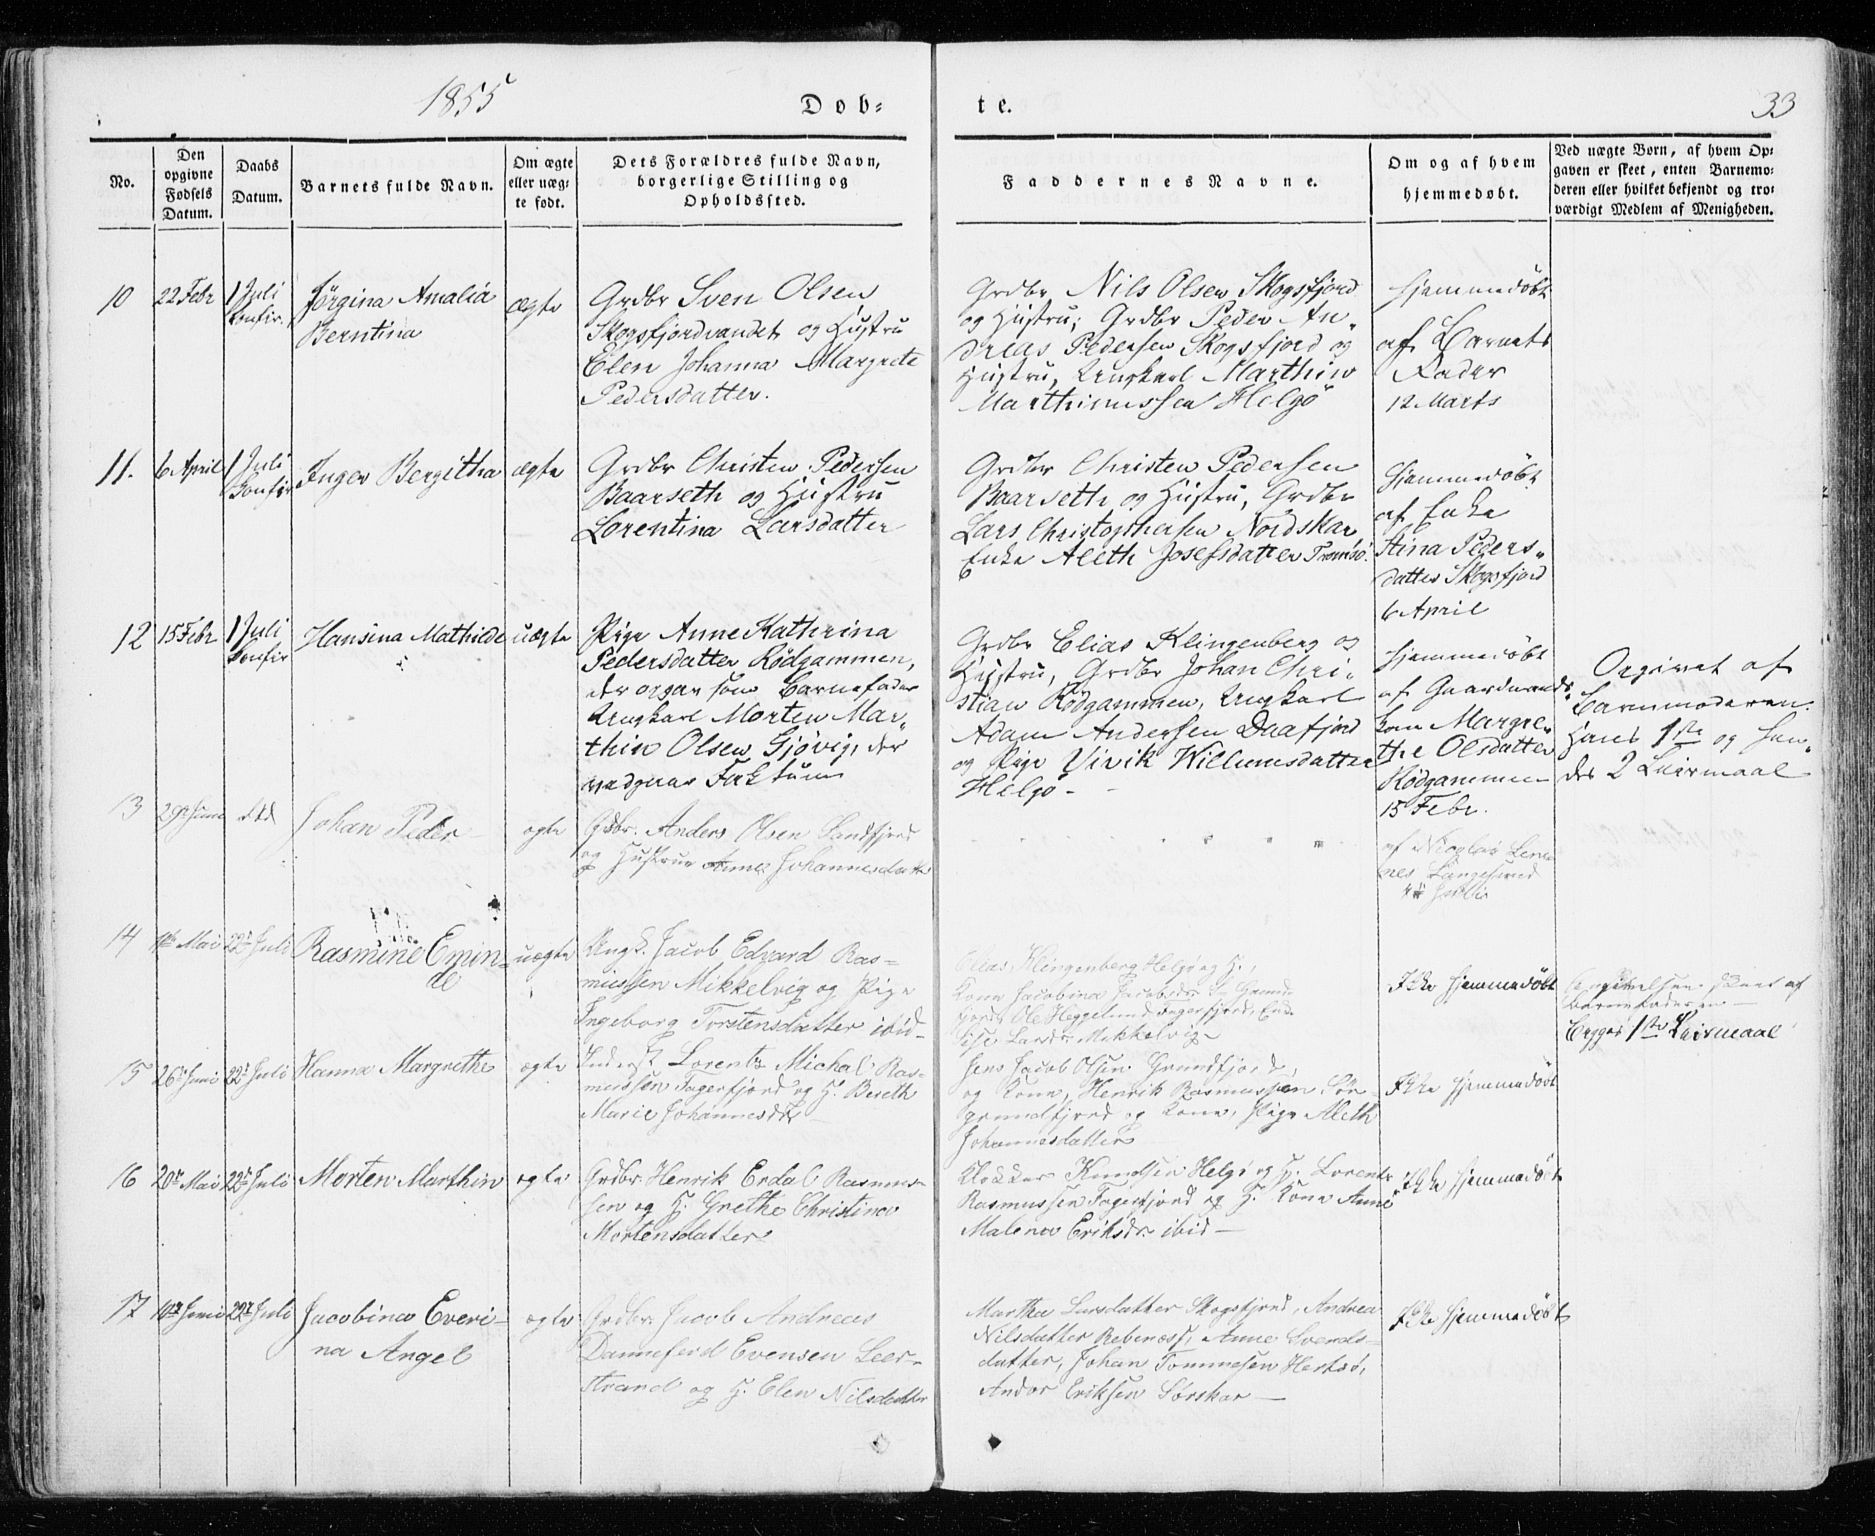 1855
Dob-
te.
33
No.
Den opgivne Fødsels Datum.
Daabs Datum.
Barnets fulde Navn.
Om ægte eller uæg-te født.
Dets Forældres fulde Navn, borgerlige Stilling og Opholdssted.
Faddernes Navne.
Om og af hvem hjemmedøbt.
Ved uægte Børn, af hvem Op-gaven er skeet, enten Barnemo-deren eller hvilket bekjendt og tro-værdigt Medlem af Menigheden.
10
22 Febr
1 Juli
Confir.
Jørgina Amalia
Berntina
ægte
Grdbr Sven Olsen
Skogsfjordvandet og Hustru
Elen Johanna Margrete
Pedersdatter.
Grdbr Nils Olsen Skogsfjord
og Hustru, Grdbr Peder An-
drias Pedersen Skogsfjord og
Hustru, Ungkarl Marthin
Marthinussen Helgö
hjemmedöbt
af Barnets
Fader
12 Marts
11.
6 April
1 Juli
Confir
Inger Bergitha
ægte
Grdbr Christen Pedersen
Baarseth og Hustru
Lorentina Larsdatter
Grdbr Christen Pedersen
Baarseth og Hustru, Grdbr
Lars Christophersen Nordskar
Enke Aleth Josefsdatter Tromsö.
hjemmedöbt
af Enke
Stina Peders-
datter Skogsfjord
6 April
12
15 Febr
1 Juli
Confir
Hansina Mathilde
uægte
Pige Anne Kathrina
Pedersdatter Rödgammen,
der opgav som Barnefader
Ungkarl Morten Mar-
thin Olsen Gjövig, der
vedgaar Faktum
Grdbr Elias Klingenberg og
Hustru, Grdbr Johan Chri-
stian Rödgammen, Ungkarl
Adam Andersen Daafjord
og Pige Vivik Willumsdatter
Helgö -
hjemmedöbt
af Gaardmands-
kone Margre-
the Olsdatter
Rödgammen
15 Febr.
Opgivet af
Barnmoderen.
Hans 1ste og hen-
des 2 Leiermaal
13
29de Juni
dtd
Johan Peder
ægte
Grdbr. Anders Olsen Sandfjord
og Hustrue Anne Johannesdatter
14
22de Juli
Rasmine Emin-
de
uægte
Ungk. Jacob Edvard Ras-
mussen Mikkelvig og Pige
Ingeborg Torstensdatter ibid-
Elias Klingenberg Helgö og H.,
Kone Jacobina
Ole Heggelund Fagerfjord,
Mikkelvig-
Ikke hjemmedöbt
Opgivelsen skeet af
Barnefaderen -
Begges 1ste Leiermaal
15
26de Juni
22de Juli
Hanna Margrethe
ægte
Inderst Lorents Michal Ras-
mussen Fagerfjord og H. Bereth
Marie Johannesdtr -
Jens Jacob Olsen Grundfjord,
og Kone, Henrik Rasmussen Sör-
grundfjord og Kone, Pige Aleth
Johannesdatter
Ikke hjemmedöbt
16
20de Mai
22de Juli
Morten Marthin
ægte
Grdbr Henrik Erdal Rasmus-
sen og H. Grethe Christine
Mortensdatter
Klokker Knudsen Helgö og H. Lorents
Rasmussen Fagerfjord og H. Kone Anne
Malena Eriksdr. ibid -
Ikke hjemmedöbt
17
10de Juni
22de Juli
Jacobine Everi-
na Angel
ægte
Grdbr. Jacob Andreas
Danneferd Evensen Leer-
strand og H. Elen Nilsdatter
Martha Larsdatter Skogsfjord, Andrea
Nilsdatter Rebenæss, Anne Svends-
datter, Johan Tommesen Hersö,
Andor Eriksen Sörskar -
Ikke hjemmedöbt